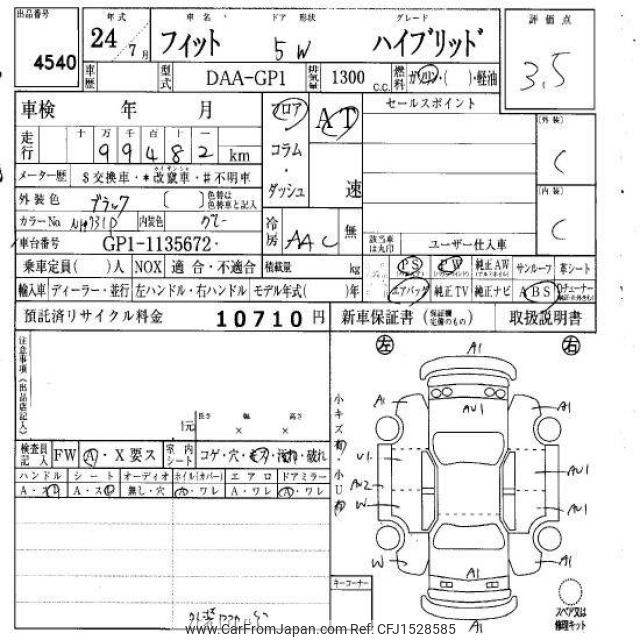 出品番号 年式 車名 ドア 形状 グレード 評価点
4540 24 / 7月 フィット 5 W ハイブリッド 3.5
車歴 型式 DAA-GP1 排気量 1300 C.C. 燃料 ガソリン・( )・軽油
車検 年 月 フロア AT セールスポイント
(外装) C
走行 十 万 千 百 十 一
9 9 4 8 2 km コラム
メーター歴 $交換車・*改竄車・#不明車 ・ダッシュ 速
(内装) C
外装色 ブラック ( ) 色替は色替車と記入
カラーNo NH731P 内装色 グレー 冷房 AAC 無 該当車は丸印 ユーザー仕入車
車台番号 GP1-1135672
乗車定員( )人 NOX 適合・不適合 積載量 kg PS PW 純正AW サンルーフ 革シート
輸入車 ディーラー・並行 左ハンドル・右ハンドル モデル年式( )年 エアバッグ 純正TV 純正ナビ ABS
預託済リサイクル料金 10710 円 新車保証書 (保証欄完備のもの) 取扱説明書
左 右
注意事項(出品店記入)
A1
A1 AU1 A1
小キズ有
1元 長さ × 幅 × 高さ
検査員記入 FW A・X要ス 室内シート コゲ・穴・キズ・汚れ・破れ
U1 AU1
小U有
AU2
W AU1
ハンドル シート オーディオ ホイル(カバー) エアロ ドアミラー
A・ス A・ス 無し・穴 A・ワレ A・ワレ A・ワレ
W A1
キーコーナー
A1
スペア又は修理キット
www.CarFromJapan.com Ref: CFJ1528585